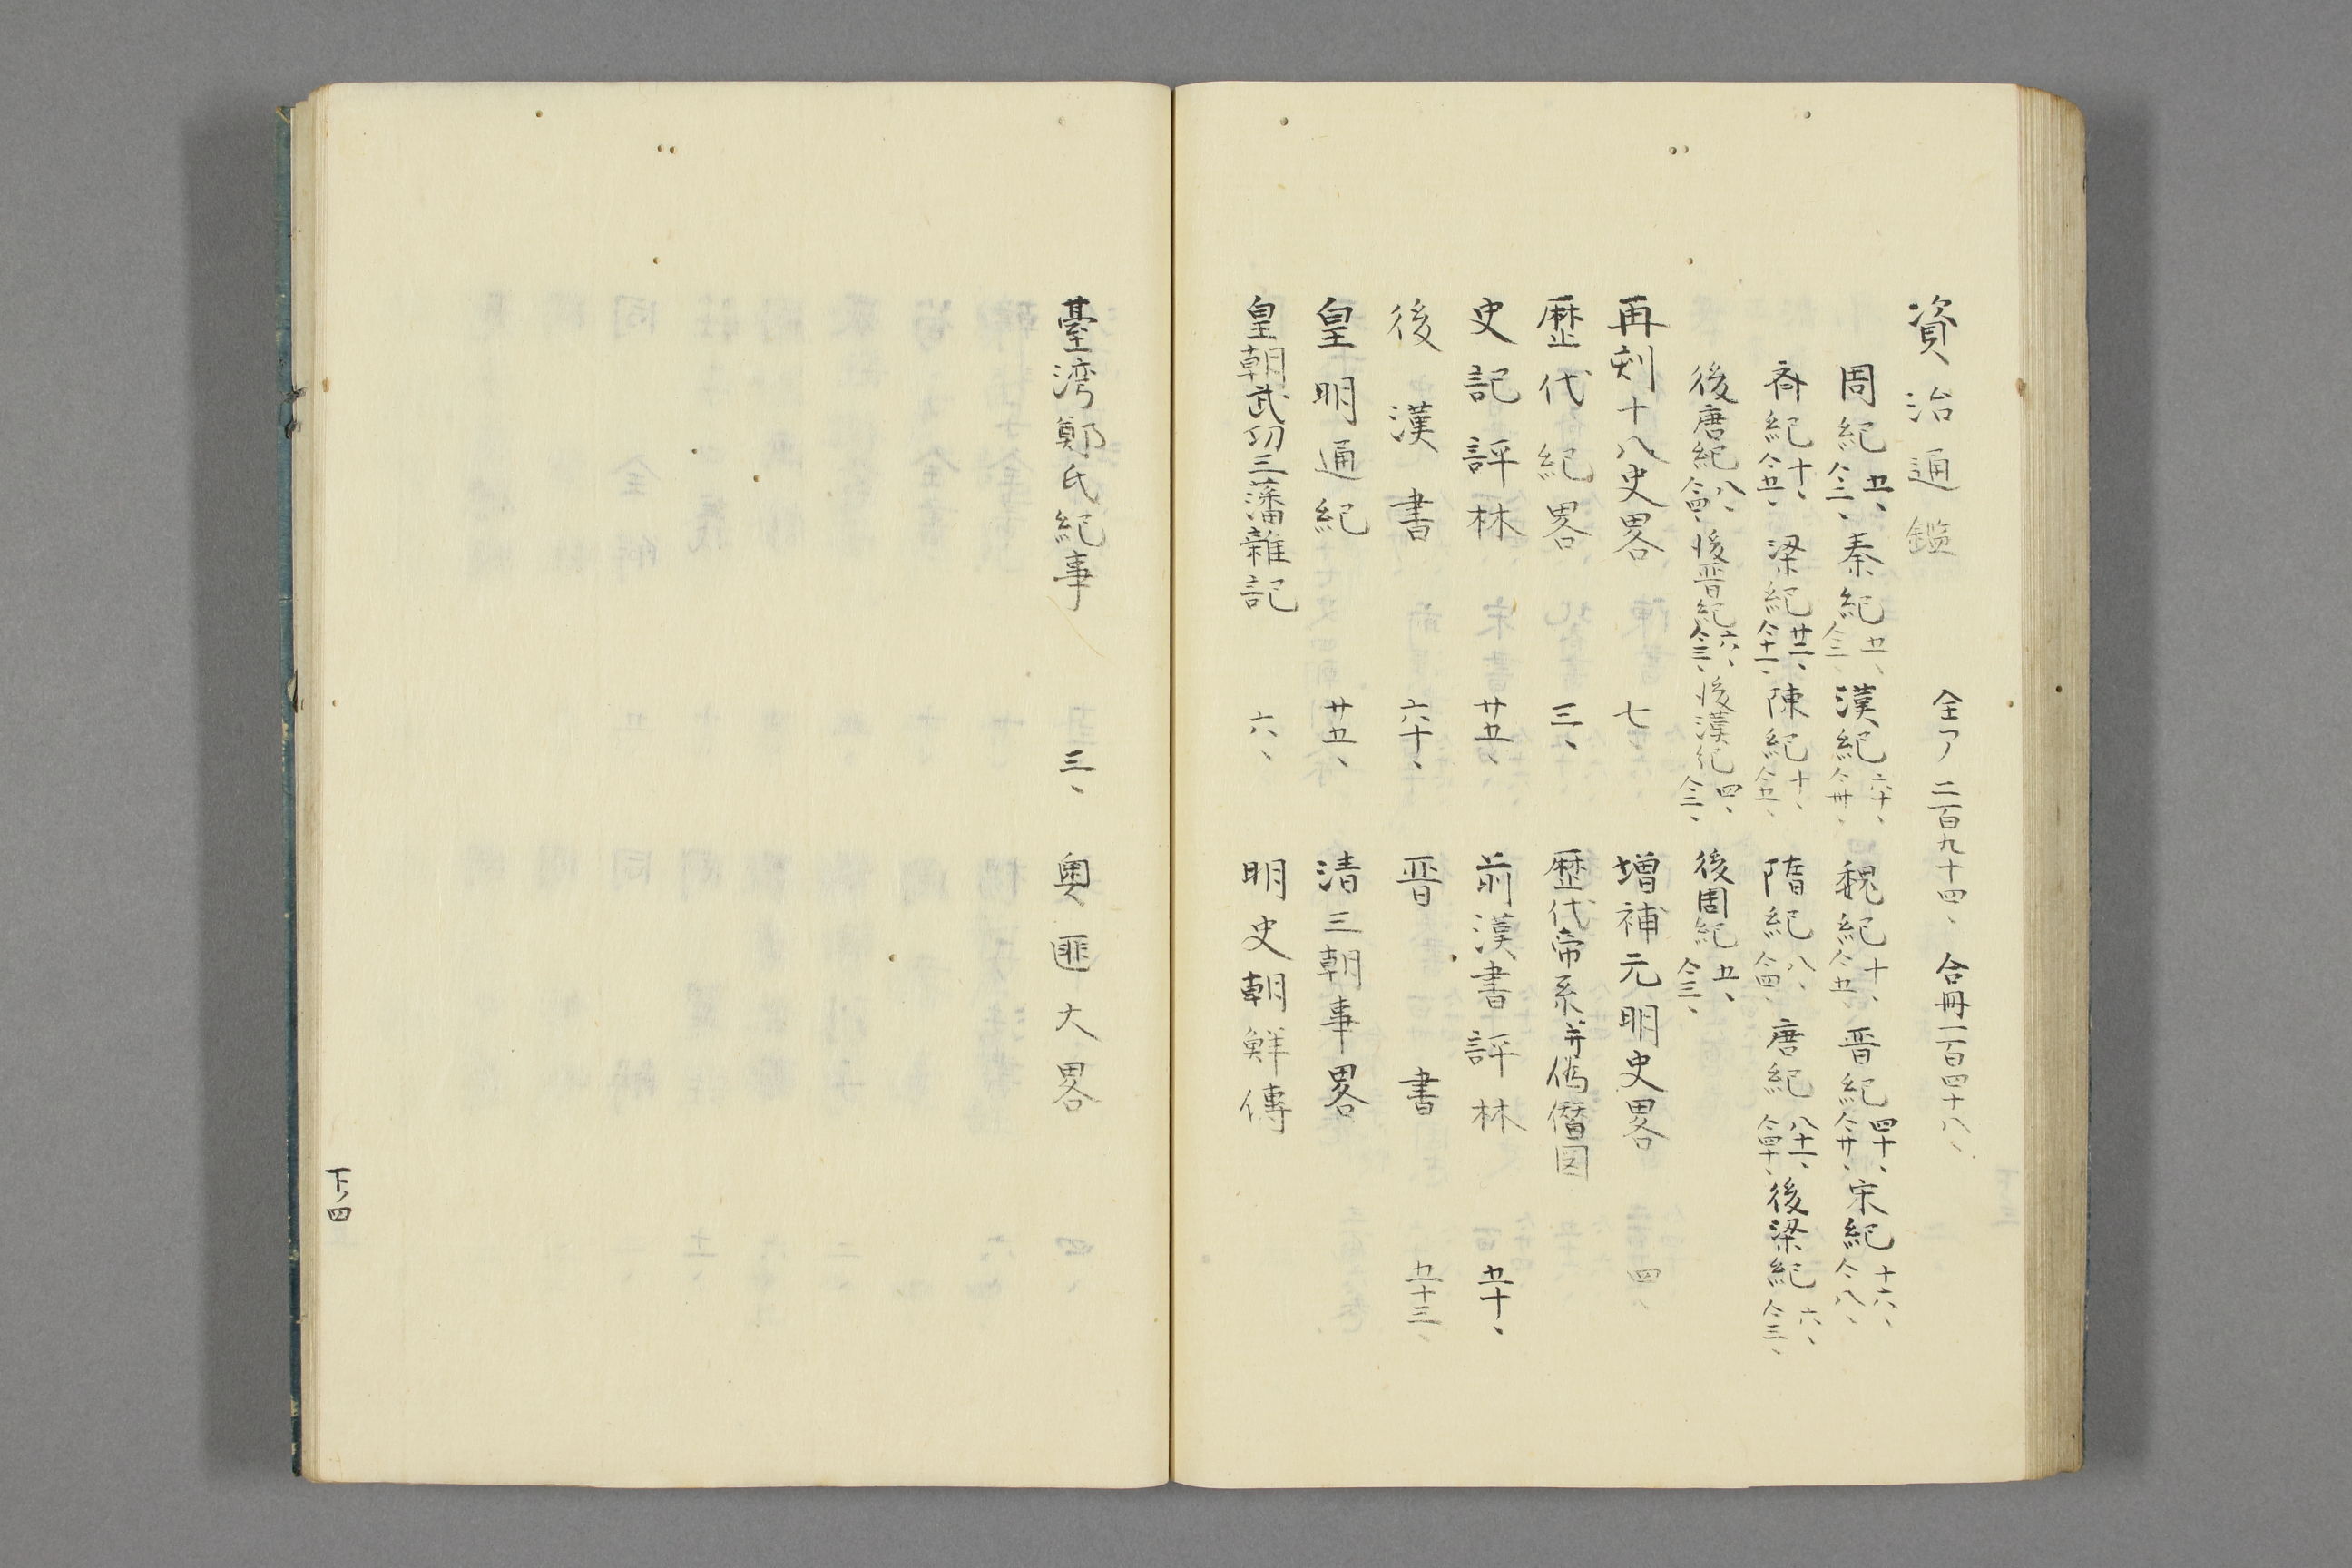 資治通鑑　全部二百九十四、合冊一百四十八、
周紀五、仝三、秦紀五、仝三、漢紀六十、仝卅、魏紀十、仝五、晋紀四十、仝廿、宋紀十六、仝八、
斉紀十、仝五、梁紀廿二、仝十一、陳紀十、仝五、隋紀八、仝四、唐紀八十一、仝四十、後梁紀六、仝三、
後唐紀八、仝四、後晋紀六、仝三、後漢紀四、仝三、後周紀五、仝三、
再刻十八史畧　七、　増補元明史畧　四、
歴代紀畧　三、　歴代帝系并偽僭図
史記評林　廿五、　前漢書評林　五十、
後漢書　六十、　晋書　五十三、
皇明通紀　廿五、　清三朝事畧
皇朝武功三藩雜記　六、　明史朝鮮傳
臺湾鄭氏紀事　三、　奥匪大畧
下ノ四